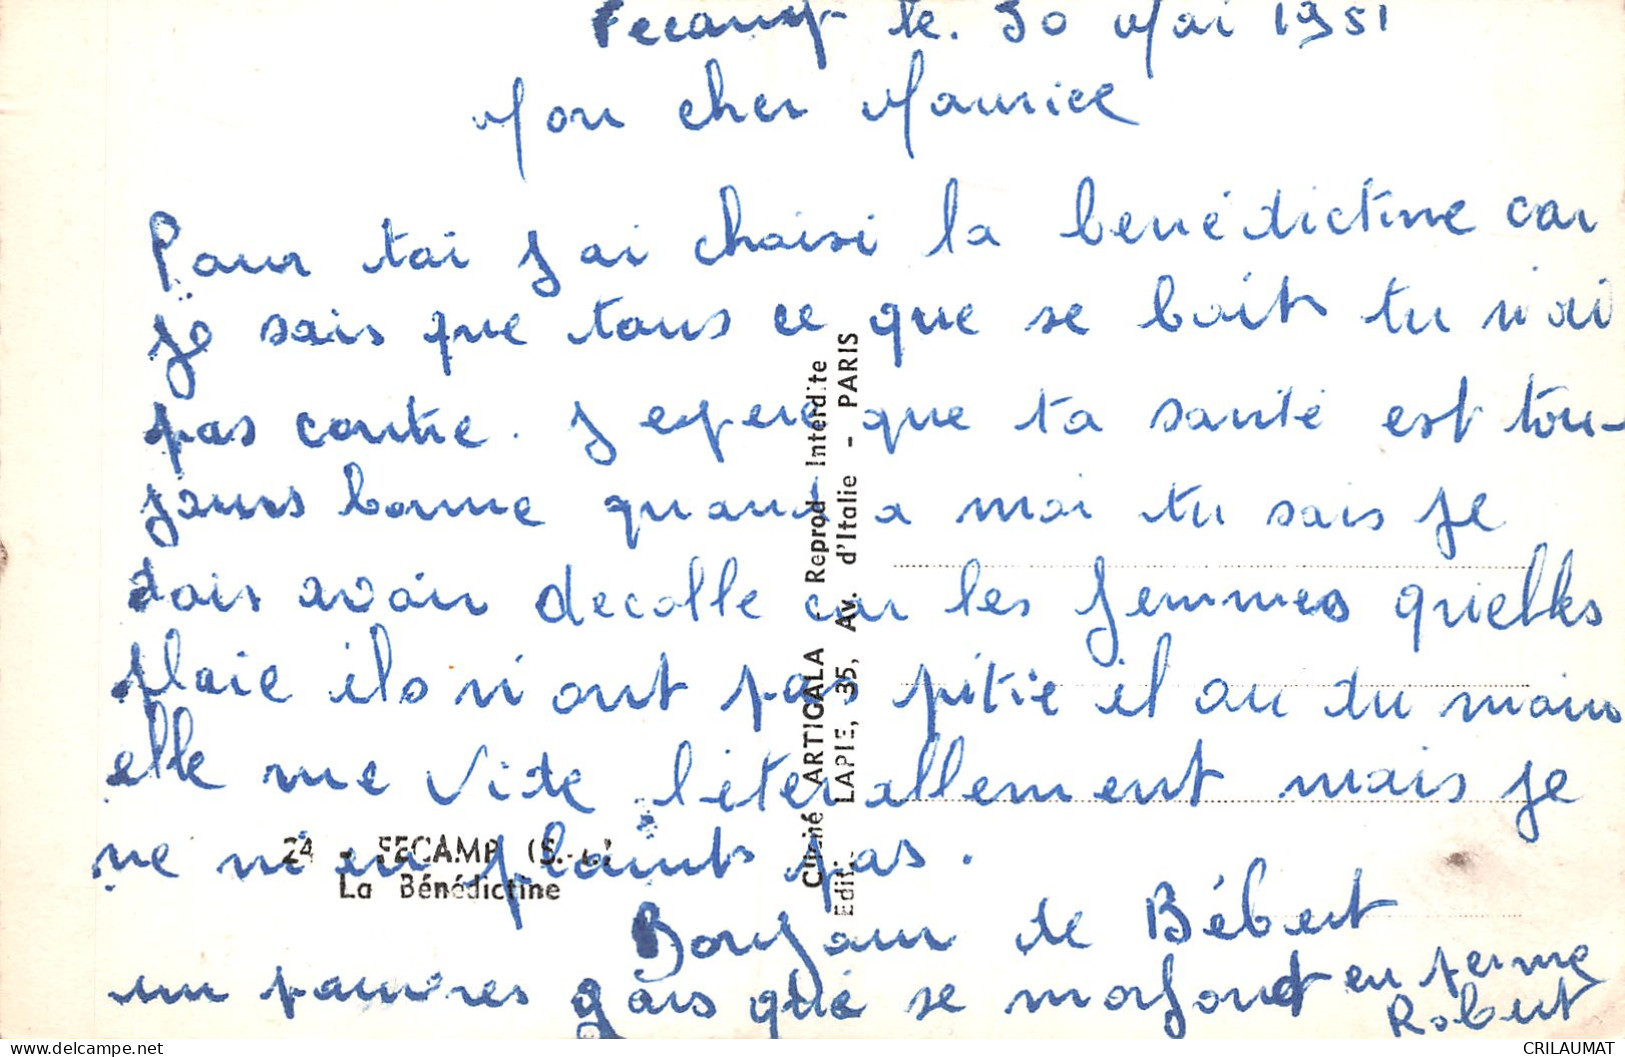 Fecamp le. 30 Mai 1951
Mon cher Maurice
Pour toi J ai choisi la benédictine car
je sais que tous ce que se boit tu n'ai
pas contre. J espere que ta santé est tou-
jours bonne quand a moi tu sais je
dois avoir decolle car les femmes qu'elles
plaie ils n'ont pas pitié il ou du moins
elle me vide literallement mais je
ne m'en plaint pas.
Bonjour de Bébert
un pauvres gars que se morfond en ferme
Robert
24 - FECAMP (S.-I.)
La Bénédictine
Cliché ARTIGALA - Reprod Interdite
Edit. LAPIE, 35, Av. d'Italie - PARIS
CRILAUMAT